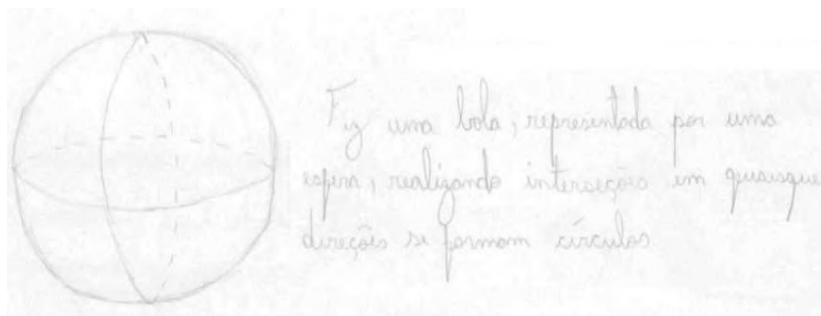 Fiz uma bola, representada por uma
esfera, realizando interseções em quaisque
direções se formam círculos